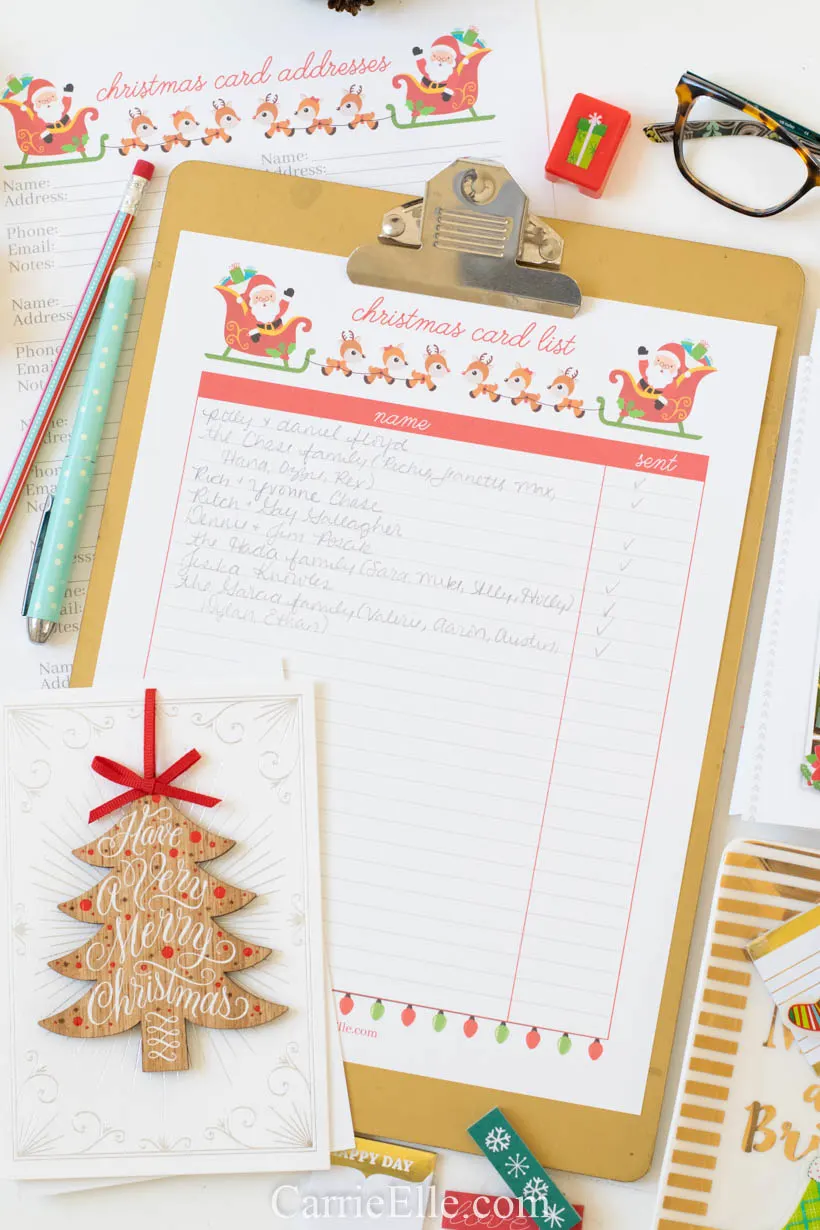 christmas card addresses
Name:
Name:
Address:
Phone:
Email:
Notes:
Name:
Address
Phone
Emai
Not
christmas card list
name
sent
Polly & daniel floyd
the Chase family (Richie, Jeanette, Max,
Hana, Ozzie, Rex)
Rich + Yvonne Chase
Ritch + Gay Gallagher
Dennis + Jim
the Hada family (Sara, Miki, Ally, Holly)
Knowles
the Garcia family (Valerie, Aaron, Austin,
Dylan, Ethan)
Nam
Add
Have
A Very
Merry
Christmas
Elle.com
PPY DAY
Bri
CarrieElle.com
love